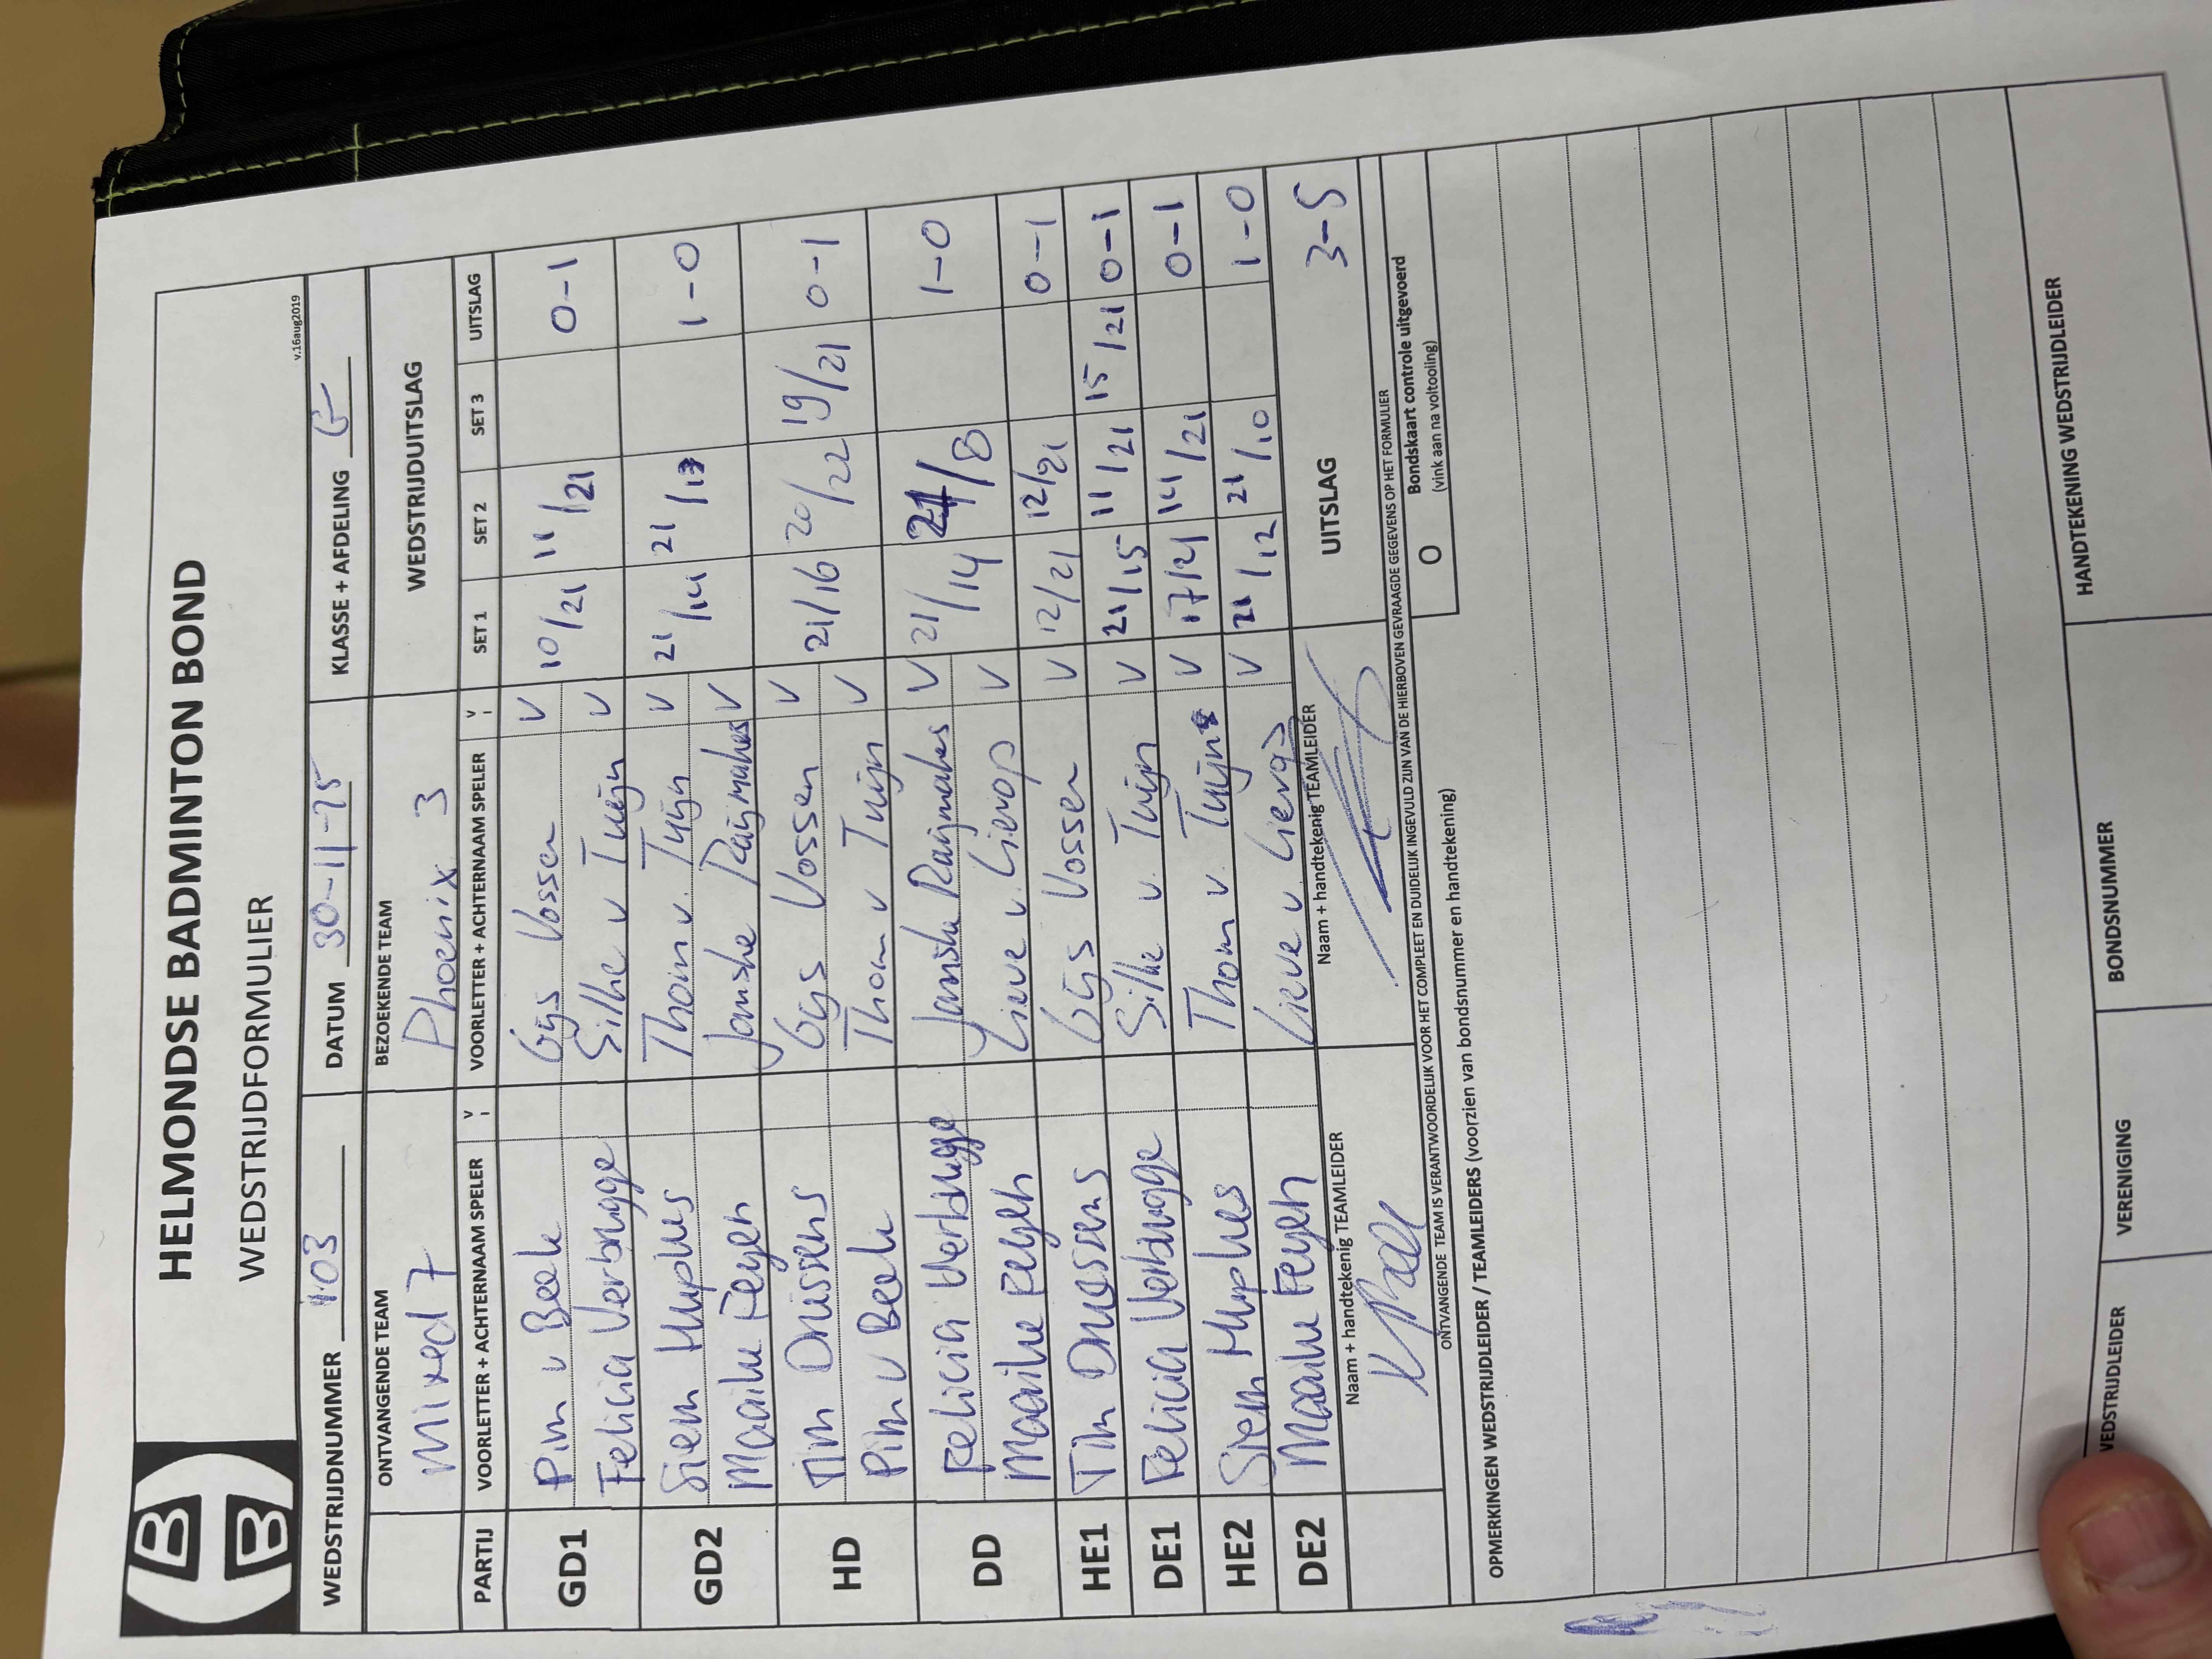 HELMONDSE BADMINTON BOND
WEDSTRIJDFORMULIER
v.16aug2019
WEDSTRIJDNUMMER 103 DATUM 30-11-25 KLASSE + AFDELING G
ONTVANGENDE TEAM BEZOEKENDE TEAM WEDSTRIJDUITSLAG
Mixed 7 Phoenix 3
PARTIJ VOORLETTER + ACHTERNAAM SPELER V VOORLETTER + ACHTERNAAM SPELER V SET 1 SET 2 SET 3 UITSLAG
GD1 Pim v Beek Gijs Vossen V 10/21 11/21 0-1
Felicia Verbrugge Silke v Tuijn V
GD2 Siem Thom v. Tuijn V 21/14 21/13 1-0
Maaike Feyen Janske Raijmakers V
HD Tim Driessens Gijs Vossen V 21/16 20/22 19/21 0-1
Pim v Beek Thom v Tuijn V
DD Felicia Verbrugge Janske Raijmakes V 21/14 21/8 1-0
Maaike Feyen Lieve v. Lierop V
HE1 Tim Driessens Gijs Vossen V 12/21 12/21 0-1
DE1 Felicia Verbrugge Silke v. Tuijn V 21/15 11/21 15/21 0-1
HE2 Siem Thom v. Tuijn V 17/21 14/21 0-1
DE2 Maaike Feyen Lieve v. Lierop V 21/12 21/10 1-0
Naam + handtekenig TEAMLEIDER Naam + handtekenig TEAMLEIDER UITSLAG 3-5
ONTVANGENDE TEAM IS VERANTWOORDELIJK VOOR HET COMPLEET EN DUIDELIJK INGEVULD ZIJN VAN DE HIERBOVEN GEVRAAGDE GEGEVENS OP HET FORMULIER
O Bondskaart controle uitgevoerd
(vink aan na voltooiing)
OPMERKINGEN WEDSTRIJDLEIDER / TEAMLEIDERS (voorzien van bondsnummer en handtekening)
WEDSTRIJDLEIDER VERENIGING BONDSNUMMER HANDTEKENING WEDSTRIJDLEIDER